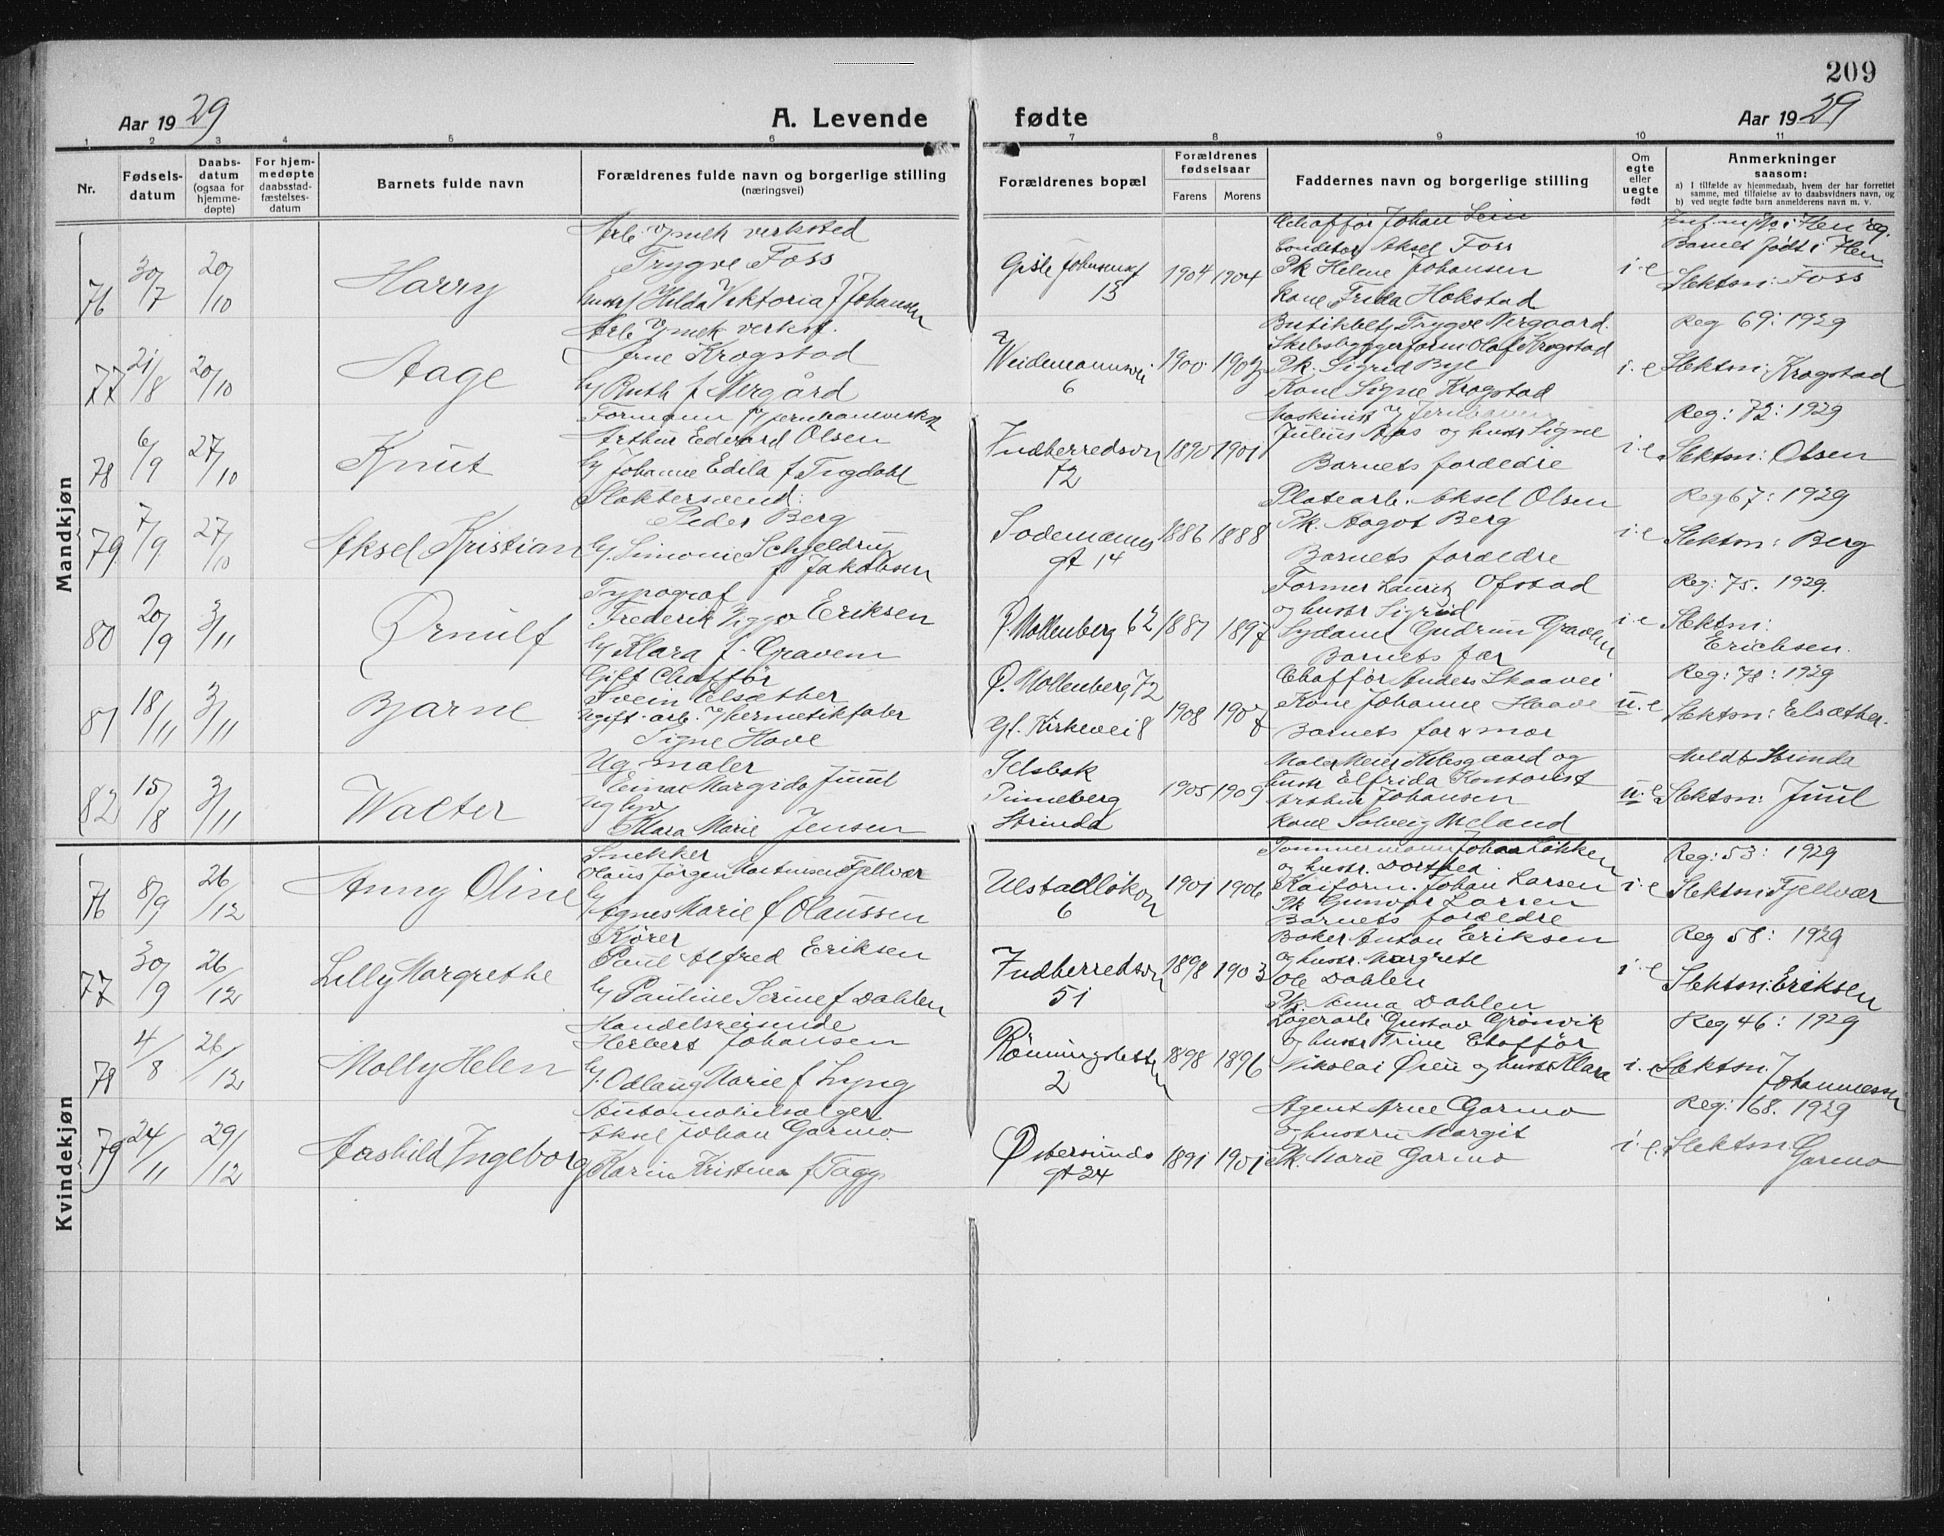 209
Aar 1929
A. Levende fødte
Aar 1929
1 2 3 4 5 6 7 8 9 10 11
Nr.
Fødsels-
datum
Daabs-
datum
(ogsaa for
hjemme-
døpte)
For hjem-
medøpte
daabsstad-
fæstelses-
datum
Barnets fulde navn
Forældrenes fulde navn og borgerlige stilling
(næringsvei)
Forældrenes bopæl
Forældrenes
fødselsaar
Farens Morens
Faddernes navn og borgerlige stilling
Om
egte
eller
uegte
født
Anmerkninger
saasom:
a) I tilfælde av hjemmedaab, hvem der har forrettet
samme, med tilføielse av to daabsvidners navn, og
b) ved uegte fødte barn anmelderens navn m. v.
Mandkjøn
76
30/7
20/10
Harry
Arb. v/ mek verksted
Trygve Foss
hustr. Hilda Viktoria f Johansen
13
1904 1904
Chafför Johan Lein
Conditor Aksel Foss
Pk Helene Johansen
kone Frida Hokstad
i. e
Barnet født i Hen
Slektsn: Foss
77
21/8
20/10
Aage
Arb v/ mek verkst.
Arne Krogstad
h/ Ruth f Nergård
Weidemannsvei
6
1900
Butikkbet. Trygve Nergaard.
Skibsbyggerform Olaf Krogstad
Pk. Sigrid Bye
Kone Signe Krogstad
i. e
Reg 69: 1929
Slektsn: Krogstad
78
6/9
27/10
Knut
Formann v/ jernbaneverkst
Arthur Edvard Olsen
h/ Johanne Edila f Tugdahl
Indherredsvn
72
1890 1901
Maskinist v/ Jernbanen
Julius Aas og hustr Signe
Barnets forældre
i. e
Reg: 72: 1929
Slektsn: Olsen
79
7/9
27/10
Aksel Kristian
Slaktersvend:
Peder Berg
h/ Simonie Schjeldrup
f Jakobsen
Sodemanns
gt 14
1886 1888
Platearb. Aksel Olsen
Pk. Aagot Berg
Barnets forældre
i. e
Reg 67: 1929
Slektsn: Berg
80
20/9
3/11
Ørnulf
Typograf
Frederik Viggo Eriksen
h/ Klara f. Gravem
Ø. Mollenberg 62
1887 1897
Former Lauritz Ofstad
og hustr Sigrid
Sydame Gudrun Gravem
Barnets far
i e
Reg: 75. 1929.
Slektsn:
Erichsen.
81
18/11
3/11
Bjarne
Gift Chafför
Svein Elsæther
Ugift. arb. v/ hermetikfabr
Signe Hove
Ø. Mollenberg 72
Gl. Kirkevei 8
1908
Chafför Anders Skaavei
Kone Johanne Haave
Barnets far & mor
u. e
Reg: 78: 1929
Slektsn: Elsæther.
82
15/8
3/11
Walter
Ug maler
Einar Margido Juul
ug
Klara Marie Jensen
Selsbak
Pinneberg
Strinda
1905 1909
hustr Elfrida Kontorist
Arthur Johansen
kone Solveig Meland
u. e
Meldt Strinda
Slektsn: Juul
Kvindekjøn
76
8/9
26/12
Anny Oline
Snekker
Hans Jørgen Martinsen Fjellvær
h/ Agnes Marie f Olaussen
Ulstadløkvn
6
1901 1906
Tommermann Johan Løkken
og hustr. Dorthea.
Kaiform. Johan Larsen
Pk Gunvor Larsen
Barnets forældre
i. e
Reg: 53: 1929
Slektsn: Fjellvær
77
30/9
26/12
Lilly Margrethe
Kjører
Paul Alfred Eriksen
h/ Pauline Serine f Dahlen
Indherredsvn
51
1898 1903
Baker Anton Eriksen
og hustr. Margrete
Ole Dahlen
Pk. Anna Dahlen
i. e
Reg 58: 1929
Slektsn: Eriksen
78
4/8
26/12
Molly Helen
Handelsreisende
Herbert Johansen
h/ Odlaug Marie f Lyng
Rønningsletten
2
1898 1896
Lagerarb Gustav Grönvik
og hustr Trine Chafför
Nikolai Øien og hustr Klara
i. e
Reg 46: 1929
Slektsn:
Johannessen
79
24/11
29/12
Aashild Ingeborg
Automobilselger
Aksel Johan Garmo.
Karin Kristina f Tagg
Østersunds
gt 24
1891 1901
Agent Arne Garmo
& hustru Margit
Pk. Marie Garmo
i. e.
Reg: 68. 1929
Slektsn:
Garmo